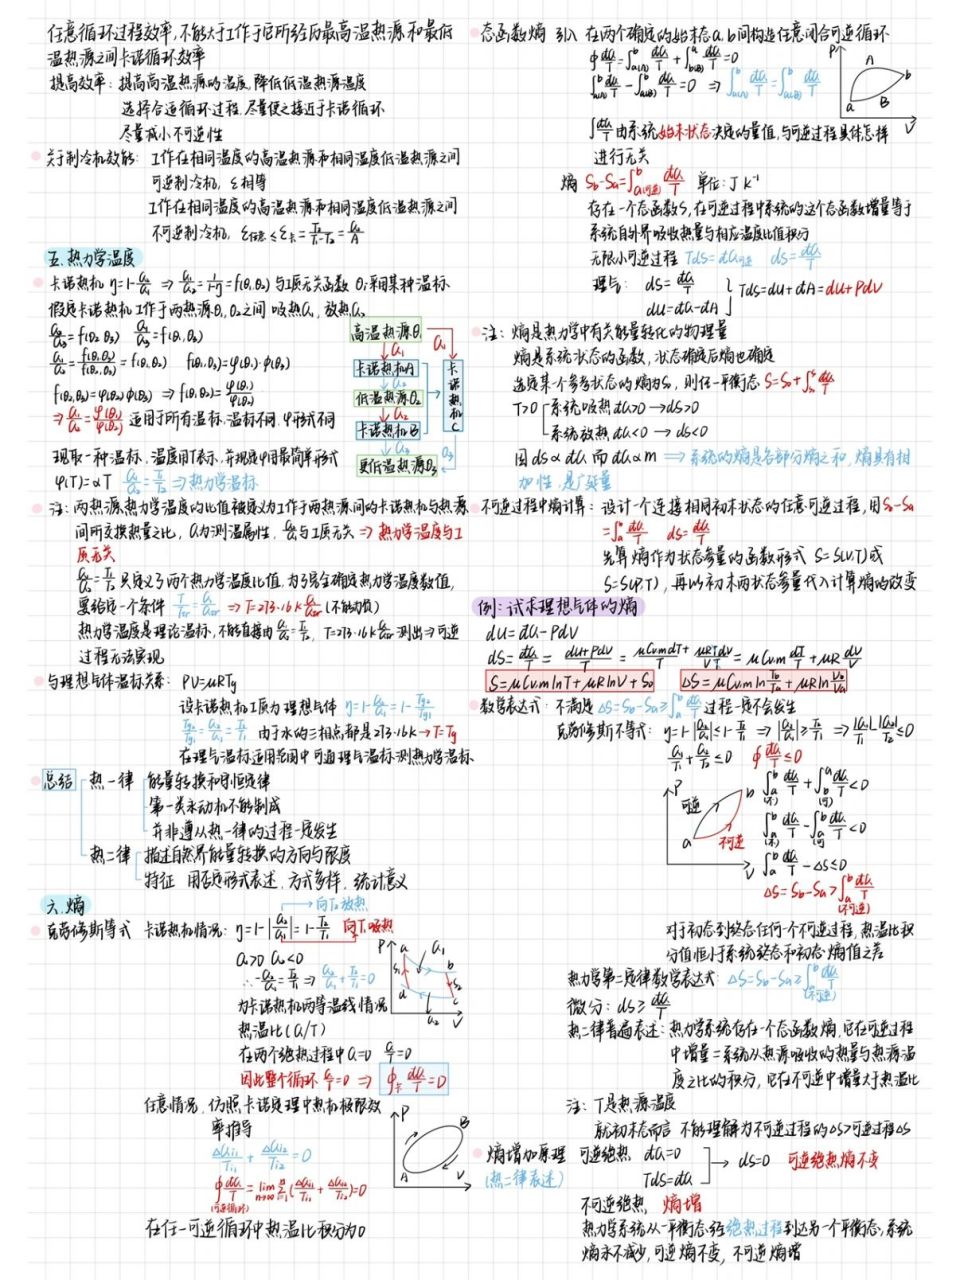 任意循环过程效率,不能大于工作于它所经历最高温热源和最低
温热源之间卡诺循环效率
提高效率: 提高高温热源的温度,降低低温热源温度
选择合适循环过程,尽量使之接近于卡诺循环
尽量减小不可逆性
关于制冷机效能: 工作在相同温度的高温热源和相同温度低温热源之间
可逆制冷机, ε相等
工作在相同温度的高温热源和相同温度低温热源之间
不可逆制冷机, ε任意≤ε卡=T₂/(T₁-T₂)=Q₂/A
五.热力学温度
卡诺热机 η=1-Q₂/Q₁ ⇒ Q₁/Q₂=1/(1-η)=f(θ₁,θ₂) 与工质无关函数 θ:采用某种温标
假定卡诺热机工作于两热源θ₁,θ₂之间 吸热Q₁, 放热Q₂
Q₂/Q₃=f(θ₂,θ₃) Q₁/Q₃=f(θ₁,θ₃)
Q₁/Q₂=f(θ₁,θ₃)/f(θ₂,θ₃)=f(θ₁,θ₂) f(θ₁,θ₃)=φ(θ₁)·φ(θ₃)
f(θ₂,θ₃)=φ(θ₂)φ(θ₃) ⇒ f(θ₁,θ₂)=φ(θ₁)/φ(θ₂)
⇒Q₁/Q₂=φ(θ₁)/φ(θ₂) 适用于所有温标,温标不同,φ形式不同
高温热源θ₁
Q₁
Q₁
卡诺热机A
Q₂
低温热源θ₂
Q₂
卡诺热机B
Q₃
更低温热源θ₃
卡诺热机C
Q₃
现取一种温标,温度用T表示,并规定φ用最简单形式
φ(T)=αT Q₁/Q₂=T₁/T₂ ⇒热力学温标
注: 两热源热力学温度的比值被定义为工作于两热源间的卡诺热机与热源
间所交换热量之比, Q为测温属性, Q₁/Q₂与工质无关 ⇒ 热力学温度与工
质无关
Q₁/Q₂=T₁/T₂只定义了两个热力学温度比值,为了完全确定热力学温度数值,
要给定一个条件 T/Ttr=Q/Qtr ⇒T=273.16KQ/Qtr(不能为负)
热力学温度是理论温标,不能直接由Q₁/Q₂=T₁/T₂, T=273.16KQ/Qtr测出⇒可逆
过程无法实现
与理想气体温标关系: PV=μRTg
设卡诺热机工质为理想气体 η=1-Q₂/Q₁=1-Tg₂/Tg₁
Tg₂/Tg₁=Q₂/Q₁=T₂/T₁ 由于水的三相点都是273.16K→T=Tg
在理气温标适用范围中可通理气温标测热力学温标
总结 热一律 能量转换和守恒定律
第一类永动机不能制成
并非遵从热一律的过程一定发生
热二律 描述自然界能量转换的方向与限度
特征 用否定形式表述,方式多样,统计意义
六.熵
向T₂放热
克劳修斯等式 卡诺热机情况: η=1-|Q₂/Q₁|=1-T₂/T₁ 向T₁吸热
Q₁>0 Q₂<0
∴-Q₂/Q₁=T₂/T₁ ⇒ Q₁/T₁+Q₂/T₂=0
P a Q₁ b S₁ S₂ d c Q₂ V
为卡诺热机两等温线情况
热温比(Q/T)
在两个绝热过程中Q=0 Q/T=0
因此整个循环 Q/T=0 ⇒ ∮卡 đQ/T=0
任意情况,仿照卡诺定理中热机极限效
率推导
ΔQi1/Ti1+ΔQi2/Ti2=0
∮(可逆循环) đQ/T=lim n→∞ Σ(ΔQi1/Ti1+ΔQi2/Ti2)=0
P B A V
在任一可逆循环中热温比积分为0
态函数熵 引入 在两个确定的始末态a.b间构造任意闭合可逆循环
∮đQ/T=∫a(A)^b đQ/T+∫b(B)^a đQ/T=0
∫a(A)^b đQ/T-∫a(B)^b đQ/T=0 ⇒ ∫a(A)^b đQ/T=∫a(B)^b đQ/T
P A b a B V
∫đQ/T由系统始末状态决定的量值,与可逆过程具体怎样
进行无关
熵 Sb-Sa=∫a(可逆)^b đQ/T 单位: J K⁻¹
存在一个态函数S,在可逆过程中系统的这个态函数增量等于
系统自外界吸收热量与相应温度比值积分
无限小可逆过程 TdS=đQ可逆 dS=đQ/T
理气: dS=đQ/T
dU=đQ-đA
TdS=dU+đA=dU+PdV
注: 熵是热力学中有关能量转化的物理量
熵是系统状态的函数,状态确定后熵也确定
选定某个参考状态的熵为S₀, 则任一平衡态 S=S₀+∫đQ/T
T>0 系统吸热đQ>0→dS>0
系统放热đQ<0→dS<0
因dS∝đQ 而đQ∝m ⇒系统的熵是各部分熵之和,熵具有相
加性,是广延量
不可逆过程中熵计算: 设计一个连接相同初末状态的任意可逆过程,用Sb-Sa
=∫a^b đQ/T dS=đQ/T
先算熵作为状态参量的函数形式 S=S(V,T)或
S=S(P,T), 再以初末两状态参量代入计算熵的改变
例:试求理想气体的熵
dU=đQ-PdV
dS=đQ/T=(dU+PdV)/T=μCv,mdT/T+μRTdV/VT=μCv,m dT/T+μR dV/V
S=μCv,mlnT+μRlnV+S₀ ΔS=μCv,mlnTb/Ta+μRlnVb/Va
数学表达式: 不满足 ΔS=Sb-Sa≥∫a^b đQ/T过程一定不会发生
克劳修斯不等式: η=1-|Q₂/Q₁|≤1-T₂/T₁ ⇒|Q₂/Q₁|≥T₂/T₁ ⇒|Q₁|/T₁-|Q₂|/T₂≤0
Q₁/T₁+Q₂/T₂≤0 ∮đQ/T≤0
P 可逆 b a 不可逆 V
∫a(不)^b đQ/T+∫b(可)^a đQ/T<0
∫a(不)^b đQ/T-∫a(可)^b đQ/T<0
∫a^b đQ/T-ΔS≤0
ΔS=Sb-Sa>∫a(不可逆)^b đQ/T
对于初态到终态任何一个不可逆过程,热温比积
分值恒小于系统终态和初态熵值之差
热力学第二定律数学表达式: ΔS=Sb-Sa≥∫a(不可逆)^b đQ/T
微分: dS≥đQ/T
热二律普遍表述: 热力学系统存在一个态函数熵,它在可逆过程
中增量=系统从热源吸收的热量与热源温
度之比的积分,它在不可逆中增量大于热温比
注: T是热源温度
就初末态而言 不能理解为不可逆过程的ΔS>可逆过程ΔS
熵增加原理 可逆绝热 đQ=0
(热二律表述) TdS=đQ
→ dS=0 可逆绝热熵不变
不可逆绝热, 熵增
热力学系统从一平衡态经绝热过程到达另一个平衡态,系统
熵永不减少,可逆熵不变, 不可逆熵增